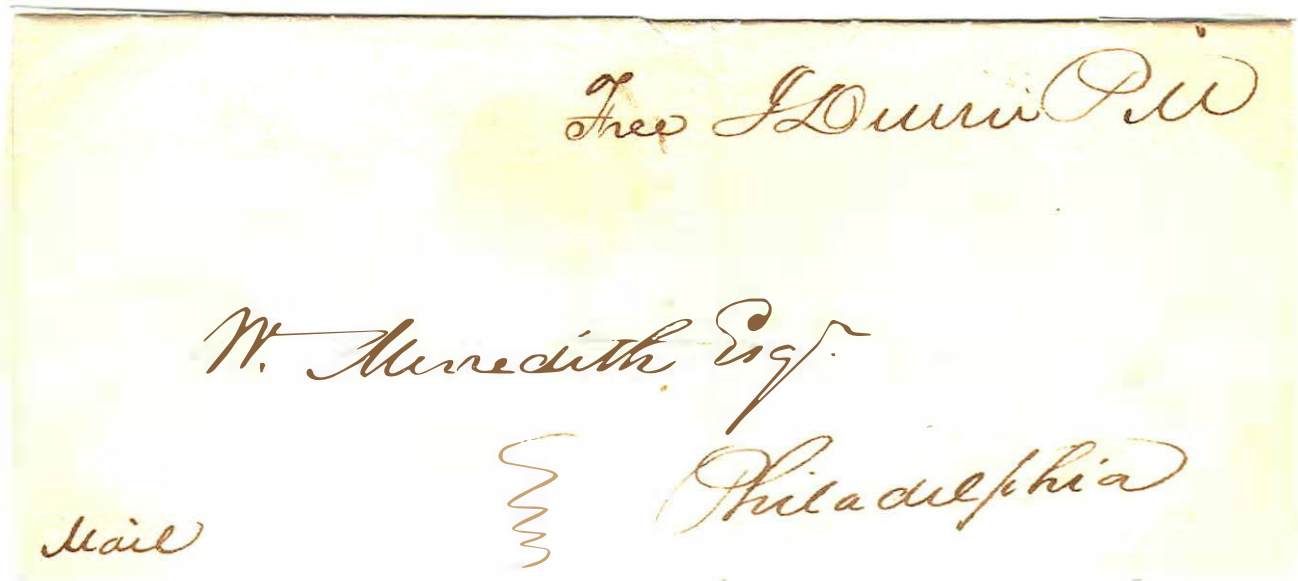 Free J Dunn P.M
W. Meredith Esqr.
Philadelphia
Mail